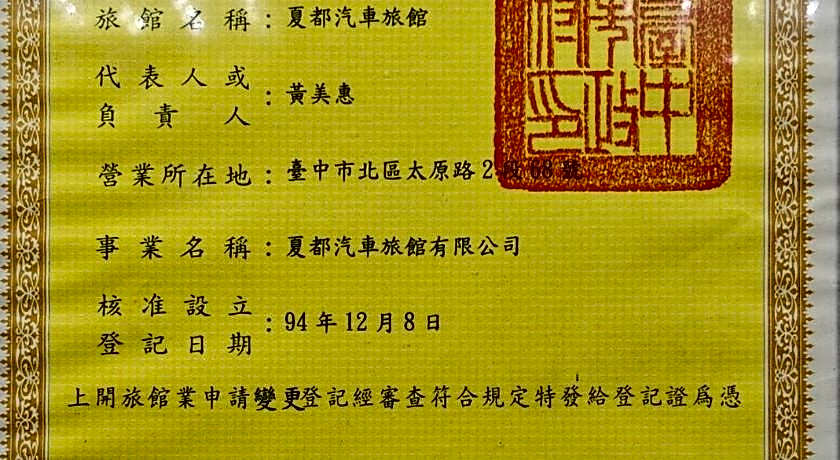 旅館名稱：夏都汽車旅館
代表人或
負責人：黃美惠
營業所在地：臺中市北區太原路2段68號
事業名稱：夏都汽車旅館有限公司
核准設立
登記日期：94年12月8日
上開旅館業申請變更登記經審查符合規定特發給登記證為憑